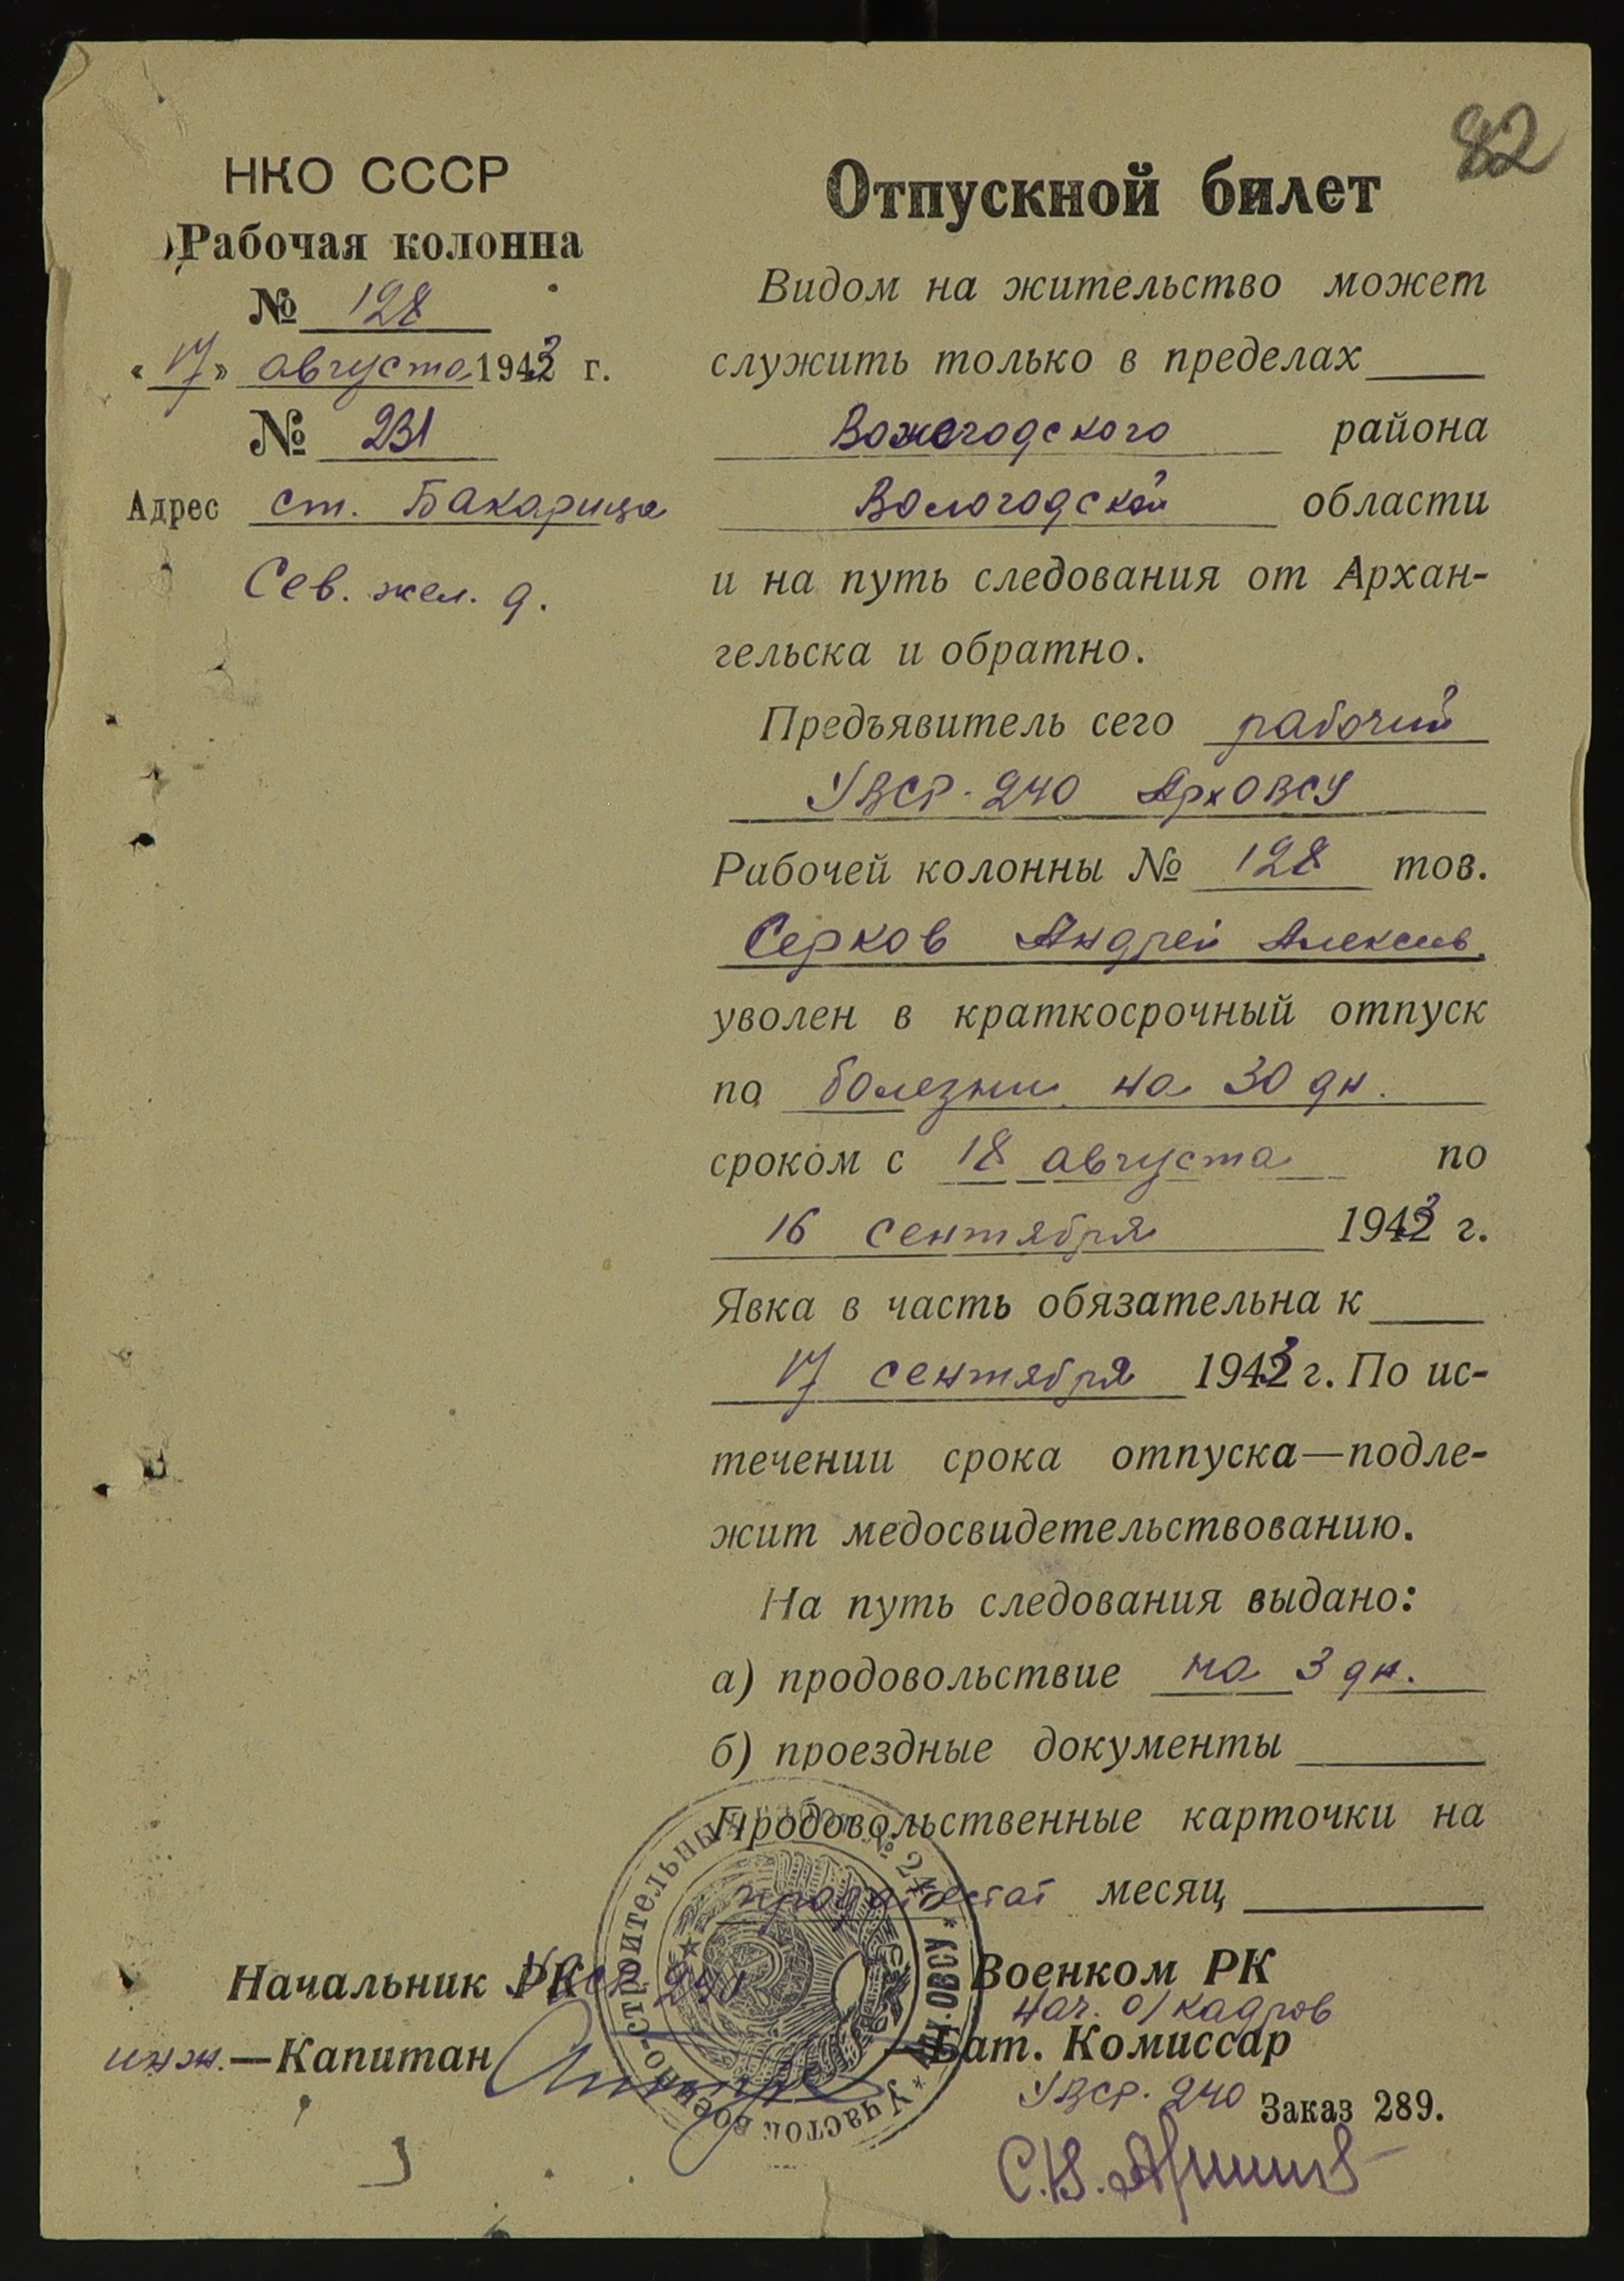 82
НКО СССР
Рабочая колонна
№ 128
« 17 » августа 1943 г.
№ 231
Адрес ст. Бакарица
Сев. жел. д.
Отпускной билет
Видом на жительство может
служить только в пределах
Вожегодского района
Вологодской области
и на путь следования от Архан-
гельска и обратно.
Предъявитель сего рабочий
УВСР-240 АрхОВСУ
Рабочей колонны № 128 тов.
Серков Андрей Алексеев.
уволен в краткосрочный отпуск
по болезни на 30 дн.
сроком с 18 августа по
16 сентября 1943 г.
Явка в часть обязательна к
17 сентября 1943 г. По ис-
течении срока отпуска—подле-
жит медосвидетельствованию.
На путь следования выдано:
а) продовольствие на 3 дн.
б) проездные документы
Продовольственные карточки на
продаттестат месяц
Начальник РК УВСР 240
инж.—Капитан
Военком РК
Нач. о/кадров
—Бат. Комиссар
УВСР-240
Заказ 289.
Участок военно-строительных работ № 240 * Арх.ОВСУ *